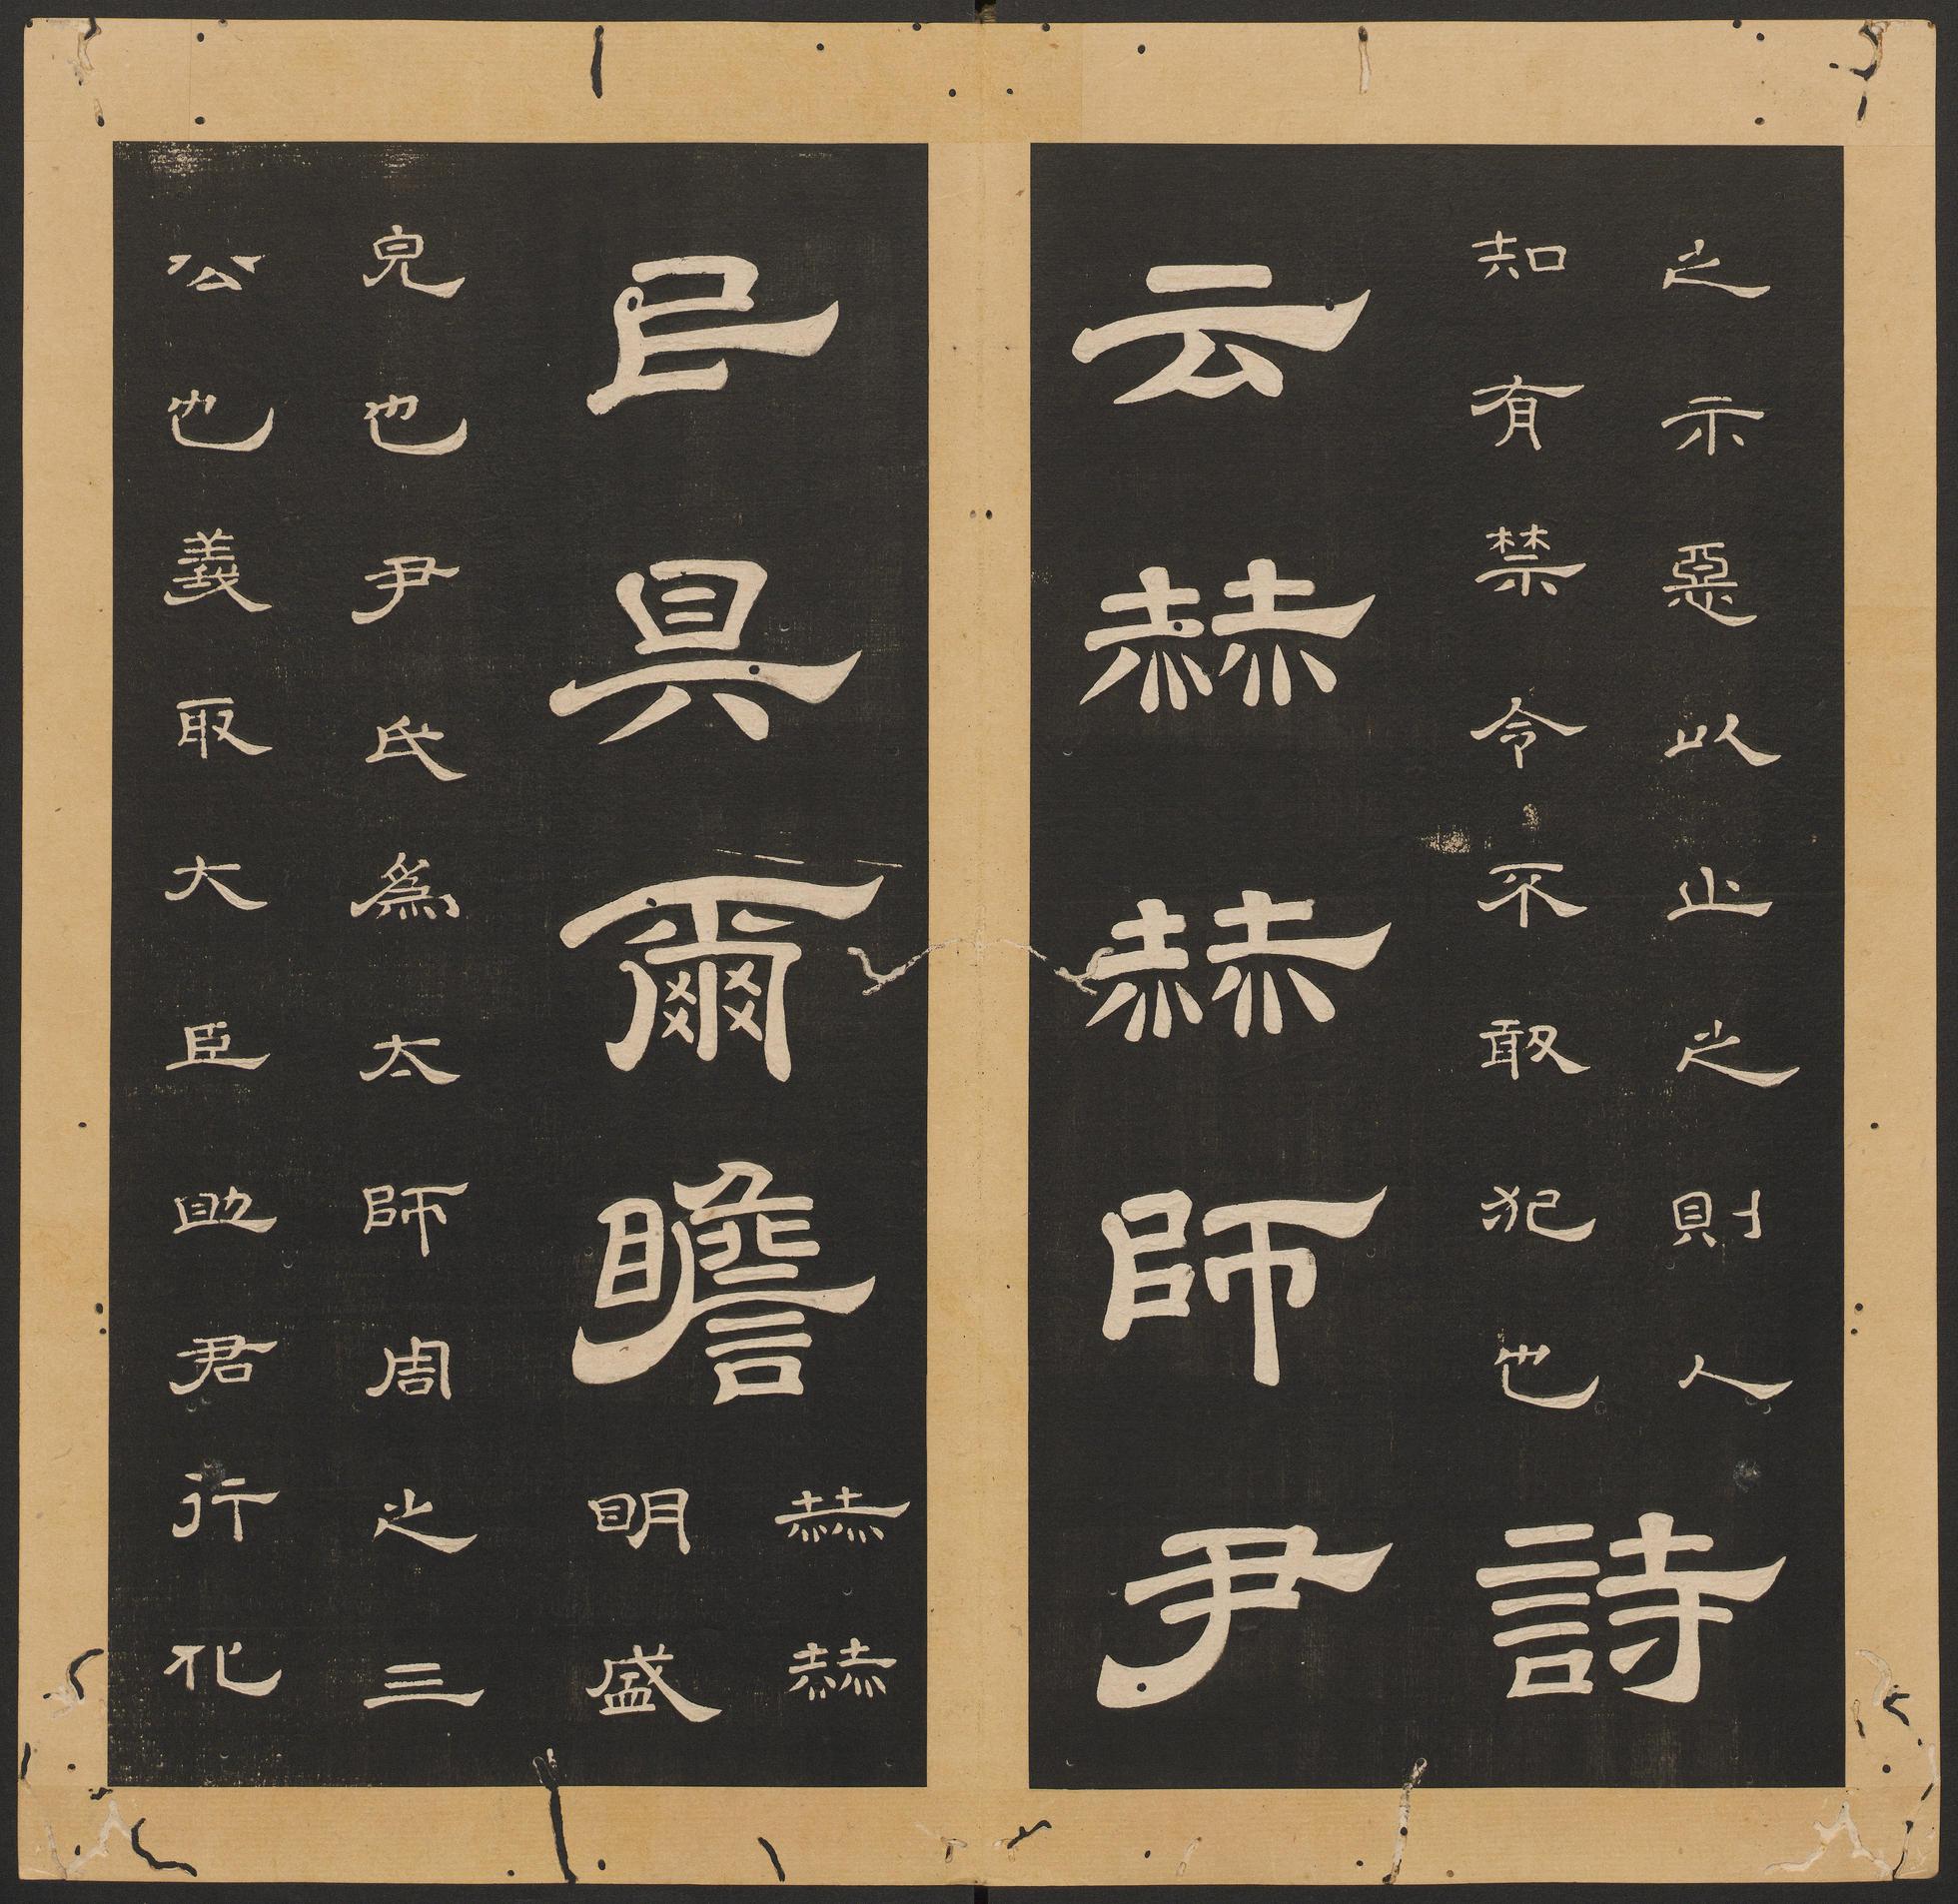 之示惡以止之則人
知有禁令不敢犯也
詩
云赫赫師尹
民具爾瞻
赫赫
明盛
皃也尹氏爲太師周之三
公也義取大臣助君行化